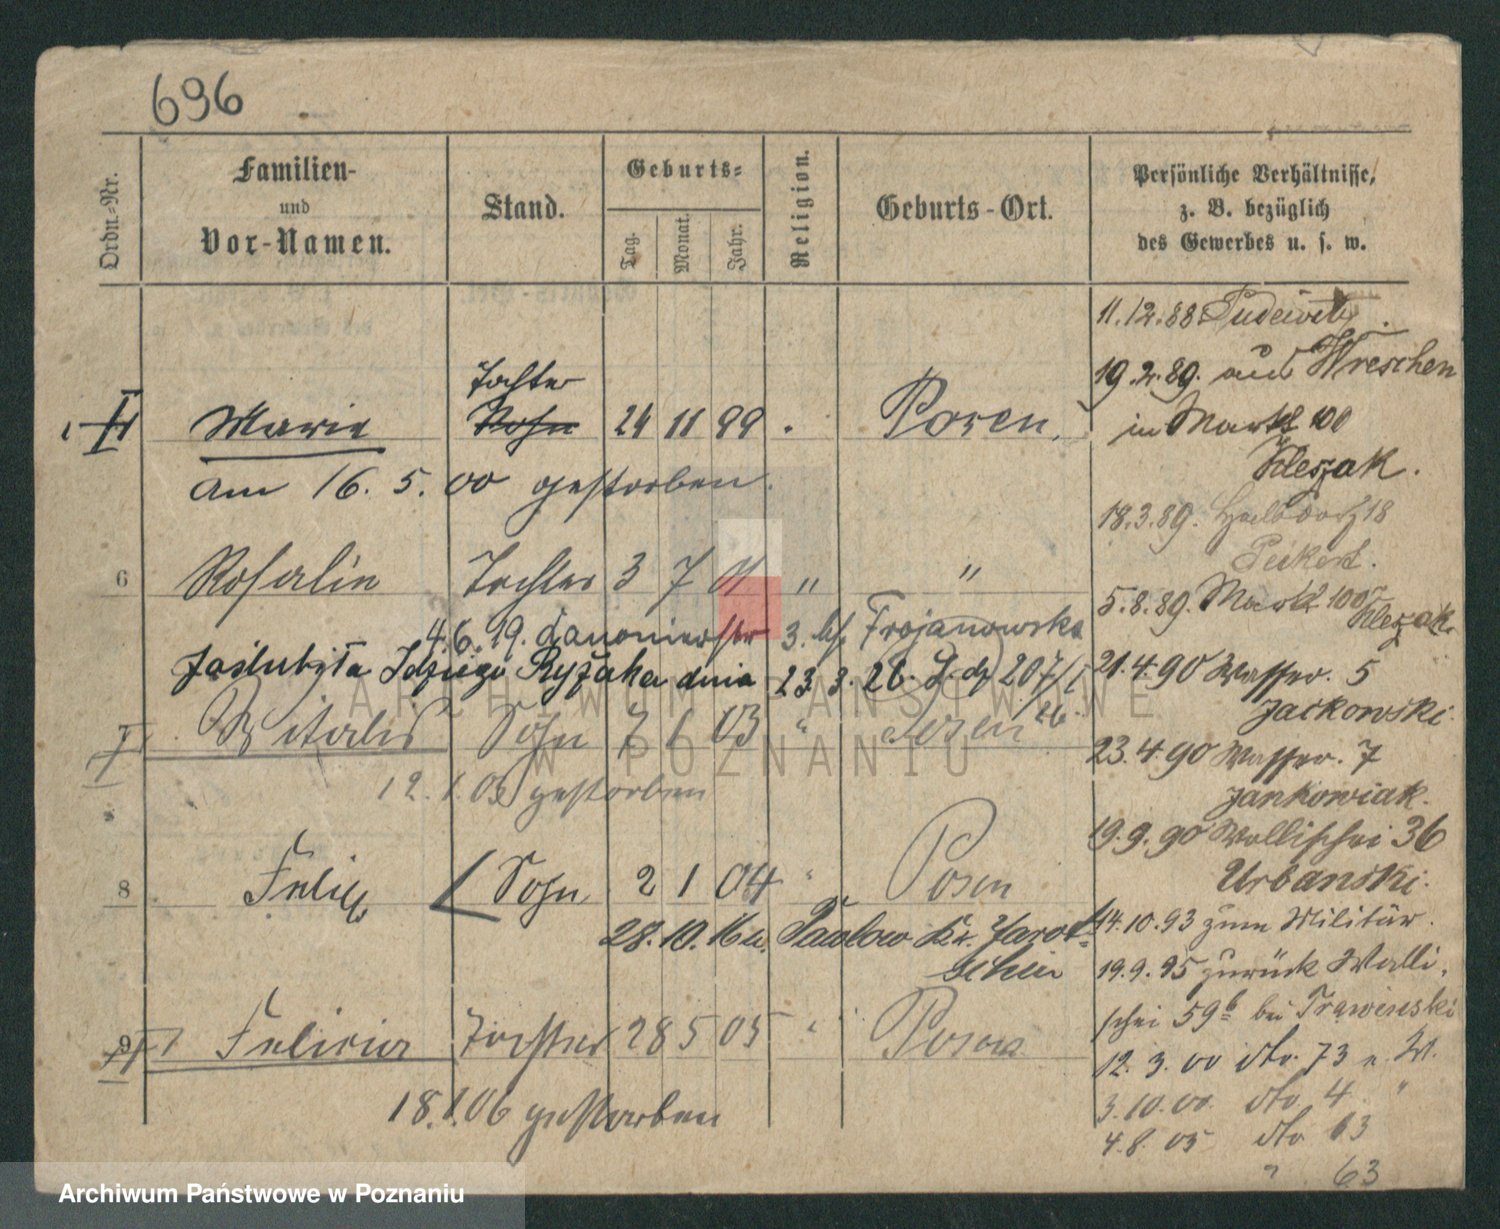 696
Ordn.-Nr.
Familien-
und
Vor-Namen.
Stand.
Geburts-
Tag.
Monat.
Jahr.
Religion.
Geburts-Ort.
Persönliche Verhältnisse,
z. B. bezüglich
des Gewerbes u. s. w.
Tochter
Marie Sohn 24 11 99 Posen
am 16. 5. 00 gestorben.
6 Rosalie Tochter 3 7 01 " "
4.6.19. 3. Trojanowska
Zaślubiła Idziego Ryżaka dnia 23. 3. 26. 207/
26.
Vitalis Sohn 7 1 03 " Posen
12.1.03 gestorben
8 Felix Sohn 2 1 04 " Posen
28.10.16 n. Pawlow Kr. Jarot-
schin
9 Felicia Tochter 28 5 05 " Posen
18.1.06 gestorben
11.12.88 Pudewitz.
19.2.89. aus Wreschen
in Markt 100
Kleszak.
18.3.89. Halbdorf 18
Peikert.
5.8.89. Markt 100
Kleszak.
21.4.90 Wasser. 5
Jackowski.
23.4.90 Wasser. 7
Jankowiak.
19.9.90 Wallischei 36
Urbanski.
14.10.93 zum Militär.
19.9.95 zurück Walli-
schei 59b bei Trawinski
12. 3. 00 dto. 73 n. W.
3.10.00. dto 4 "
4.8.05 dto 63
" 63
ARCHIWUM PAŃSTWOWE
W POZNANIU
Archiwum Państwowe w Poznaniu